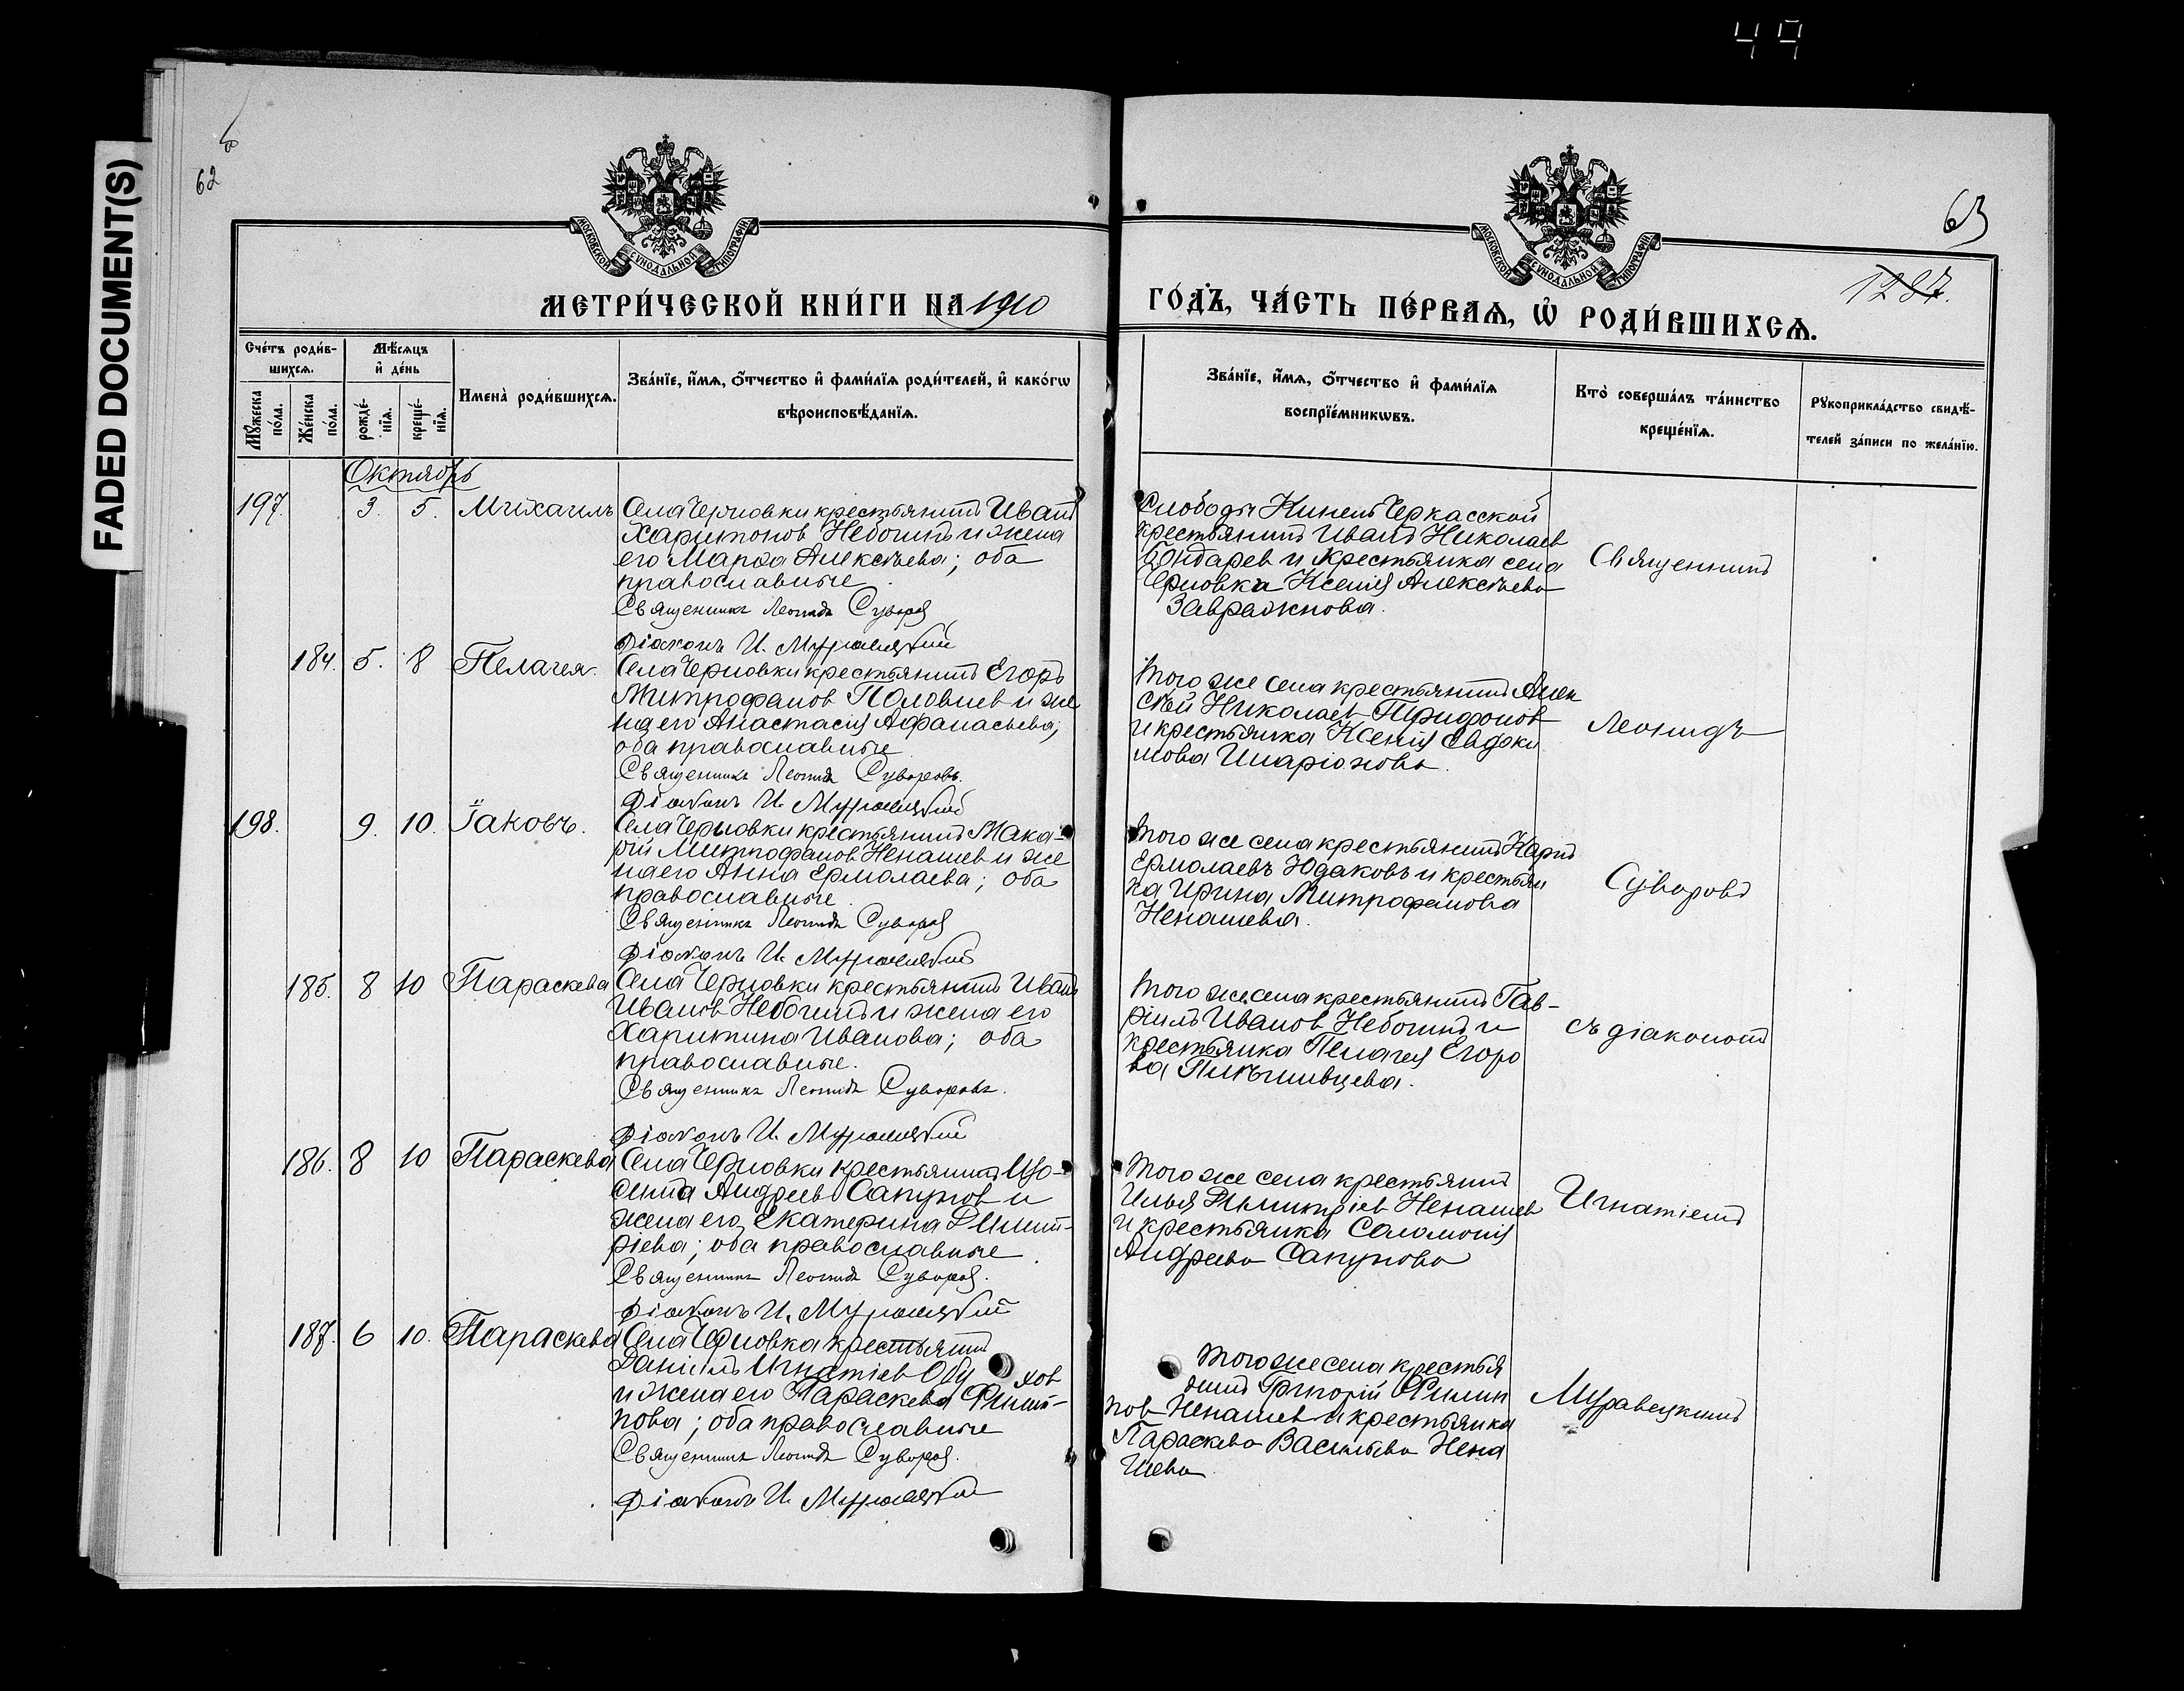 49
FADED DOCUMENT(S)
62
63
МОСКОВСКОЙ СУНОДАЛЬНОЙ ТИПОГРАФІИ
МОСКОВСКОЙ СУНОДАЛЬНОЙ ТИПОГРАФІИ
МЕТРИ́ЧЕСКОЙ КНИ́ГИ НА 1910
ГО́ДЪ, ЧА́СТЬ ПЕ́РВАѦ, Ѡ҆ РОДИ́ВШИХСѦ.
1287.
Сче́тъ роди́в-
шихсѧ.
Мꙋ́жеска по́ла.
Же́нска по́ла.
Мѣ́сѧцъ
и҆ де́нь
рожде́-нїѧ.
креще́-нїѧ.
Имена̀ роди́вшихсѧ.
Зва́нїе, и҆́мѧ, ѻ҆́тчество и҆ фами́лїѧ роди́телей, и҆ како́гѡ
вѣроисповѣ́данїѧ.
Зва́нїе, и҆́мѧ, ѻ҆́тчество и҆ фами́лїѧ
воспрїе́мникѡвъ.
Кто̀ соверша́лъ та́инство
креще́нїѧ.
Рꙋкоприкла́дство свидѣ́-
телей за́писи по жела́нїю.
Октябрь
197. 3. 5. Михаилъ
Села Черновки крестьянинъ Иванъ
Харитонов Небогинъ и жена
его Марѳа Алексѣева; оба
православные
Священникъ Леонидъ Суворов
Діаконъ И. Муравецкій
Слободы Кинель Черкасской
крестьянинъ Иванъ Николаев
Бондарев и крестьянка села
Черновка Ксенія Алексѣева
Завражнова.
Священникъ
184. 5. 8 Пелагея.
Села Черновки крестьянинъ Егоръ
Митрофанов Половнев и же
на его Анастасія Афанасьева;
оба православные
Священникъ Леонидъ Суворовъ.
Діаконъ И. Муравецкій
Того же села крестьянинъ Алек
сѣй Николаев Трифонов
и крестьянка Ксенія Евдоки
мова Иларіонова.
Леонидъ
198. 9. 10. Іаковъ.
Села Черновки крестьянинъ Мака-
рій Митрофанов Ненашев и же
на его Анна Ермолаева; оба
православные.
Священникъ Леонидъ Суворов
Діаконъ И. Муравецкій
Того же села крестьянинъ Карпъ
Ермолаевъ Юдаковъ и крестьян
ка Ирина Митрофанова
Ненашева.
Суворовъ
185. 8 10 Параскева
Села Черновки крестьянинъ Иванъ
Иванов Небогинъ и жена его
Харитина Иванова; оба
православные.
Священникъ Леонидъ Суворовъ.
Діаконъ И. Муравецкій
Того же села крестьянинъ Гав-
ріилъ Иванов Небогинъ и
крестьянка Пелагея Егоро
ва
съ діакономъ
186. 8 10 Параскева
Села Черновки крестьянинъ
Андреев Сапунов и
жена его Екатерина Димит-
ріева; оба православные.
Священникъ Леонидъ Суворов.
Діаконъ И. Муравецкій
Того же села крестьянинъ
Илья Димитріев Ненашев
и крестьянка Соломонія
Андреева Сапунова
Игнатіемъ
187. 6 10. Параскева
Села Черновка крестьянинъ
Даніилъ Игнатіев Обу хов
и жена его Параскева Филип-
пова; оба православные
Священникъ Леонидъ Суворов.
Діаконъ И. Муравецкій
Того же села крестья
нинъ Григорій Филип
пов Ненашев и крестьянка
Параскева Васильева Нена
шева
Муравецкимъ